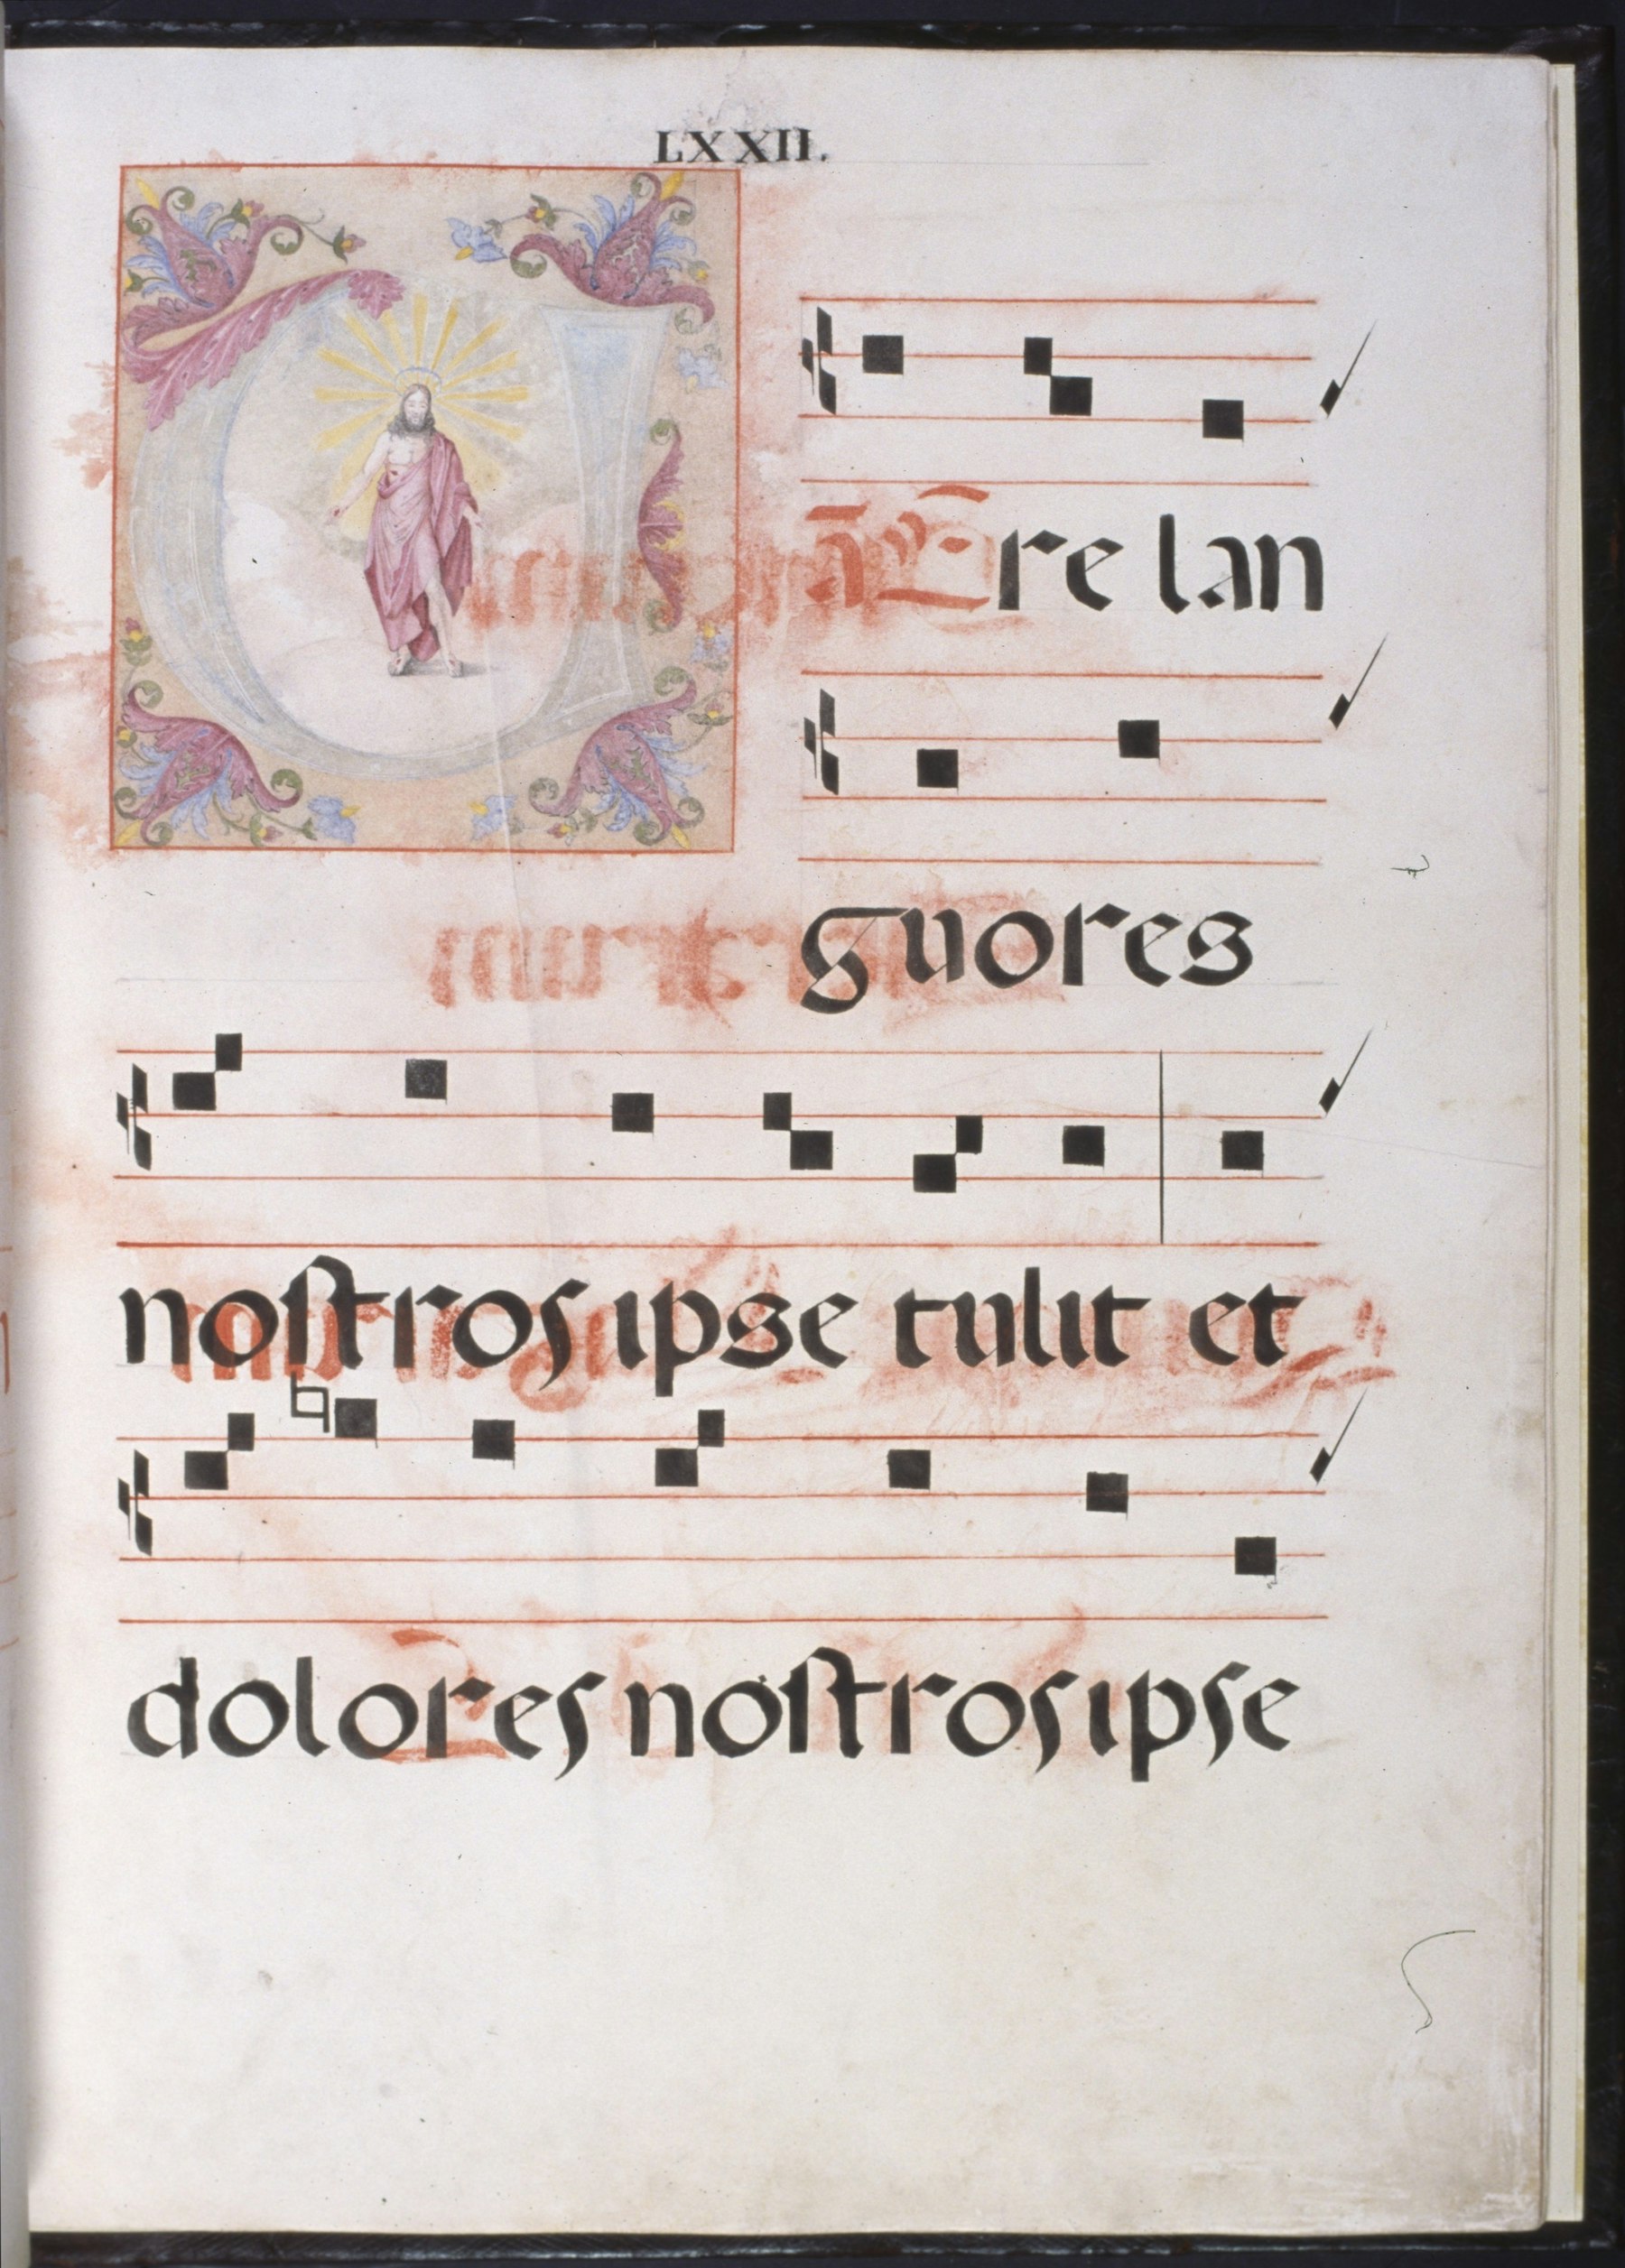 LXXII.
U
ā re lan
guores
nostros ipse tulit et
dolores nostros ipse